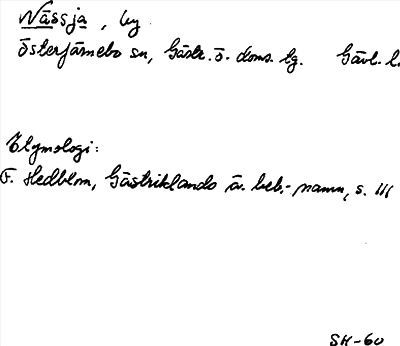 Nässja, by
Österfärnebo sn, Gästr. ö. doms. lg. Gävl. l.
Etymologi:
F. Hedblom, Gästriklands ä. beb.-namn, s. 111
SH-60